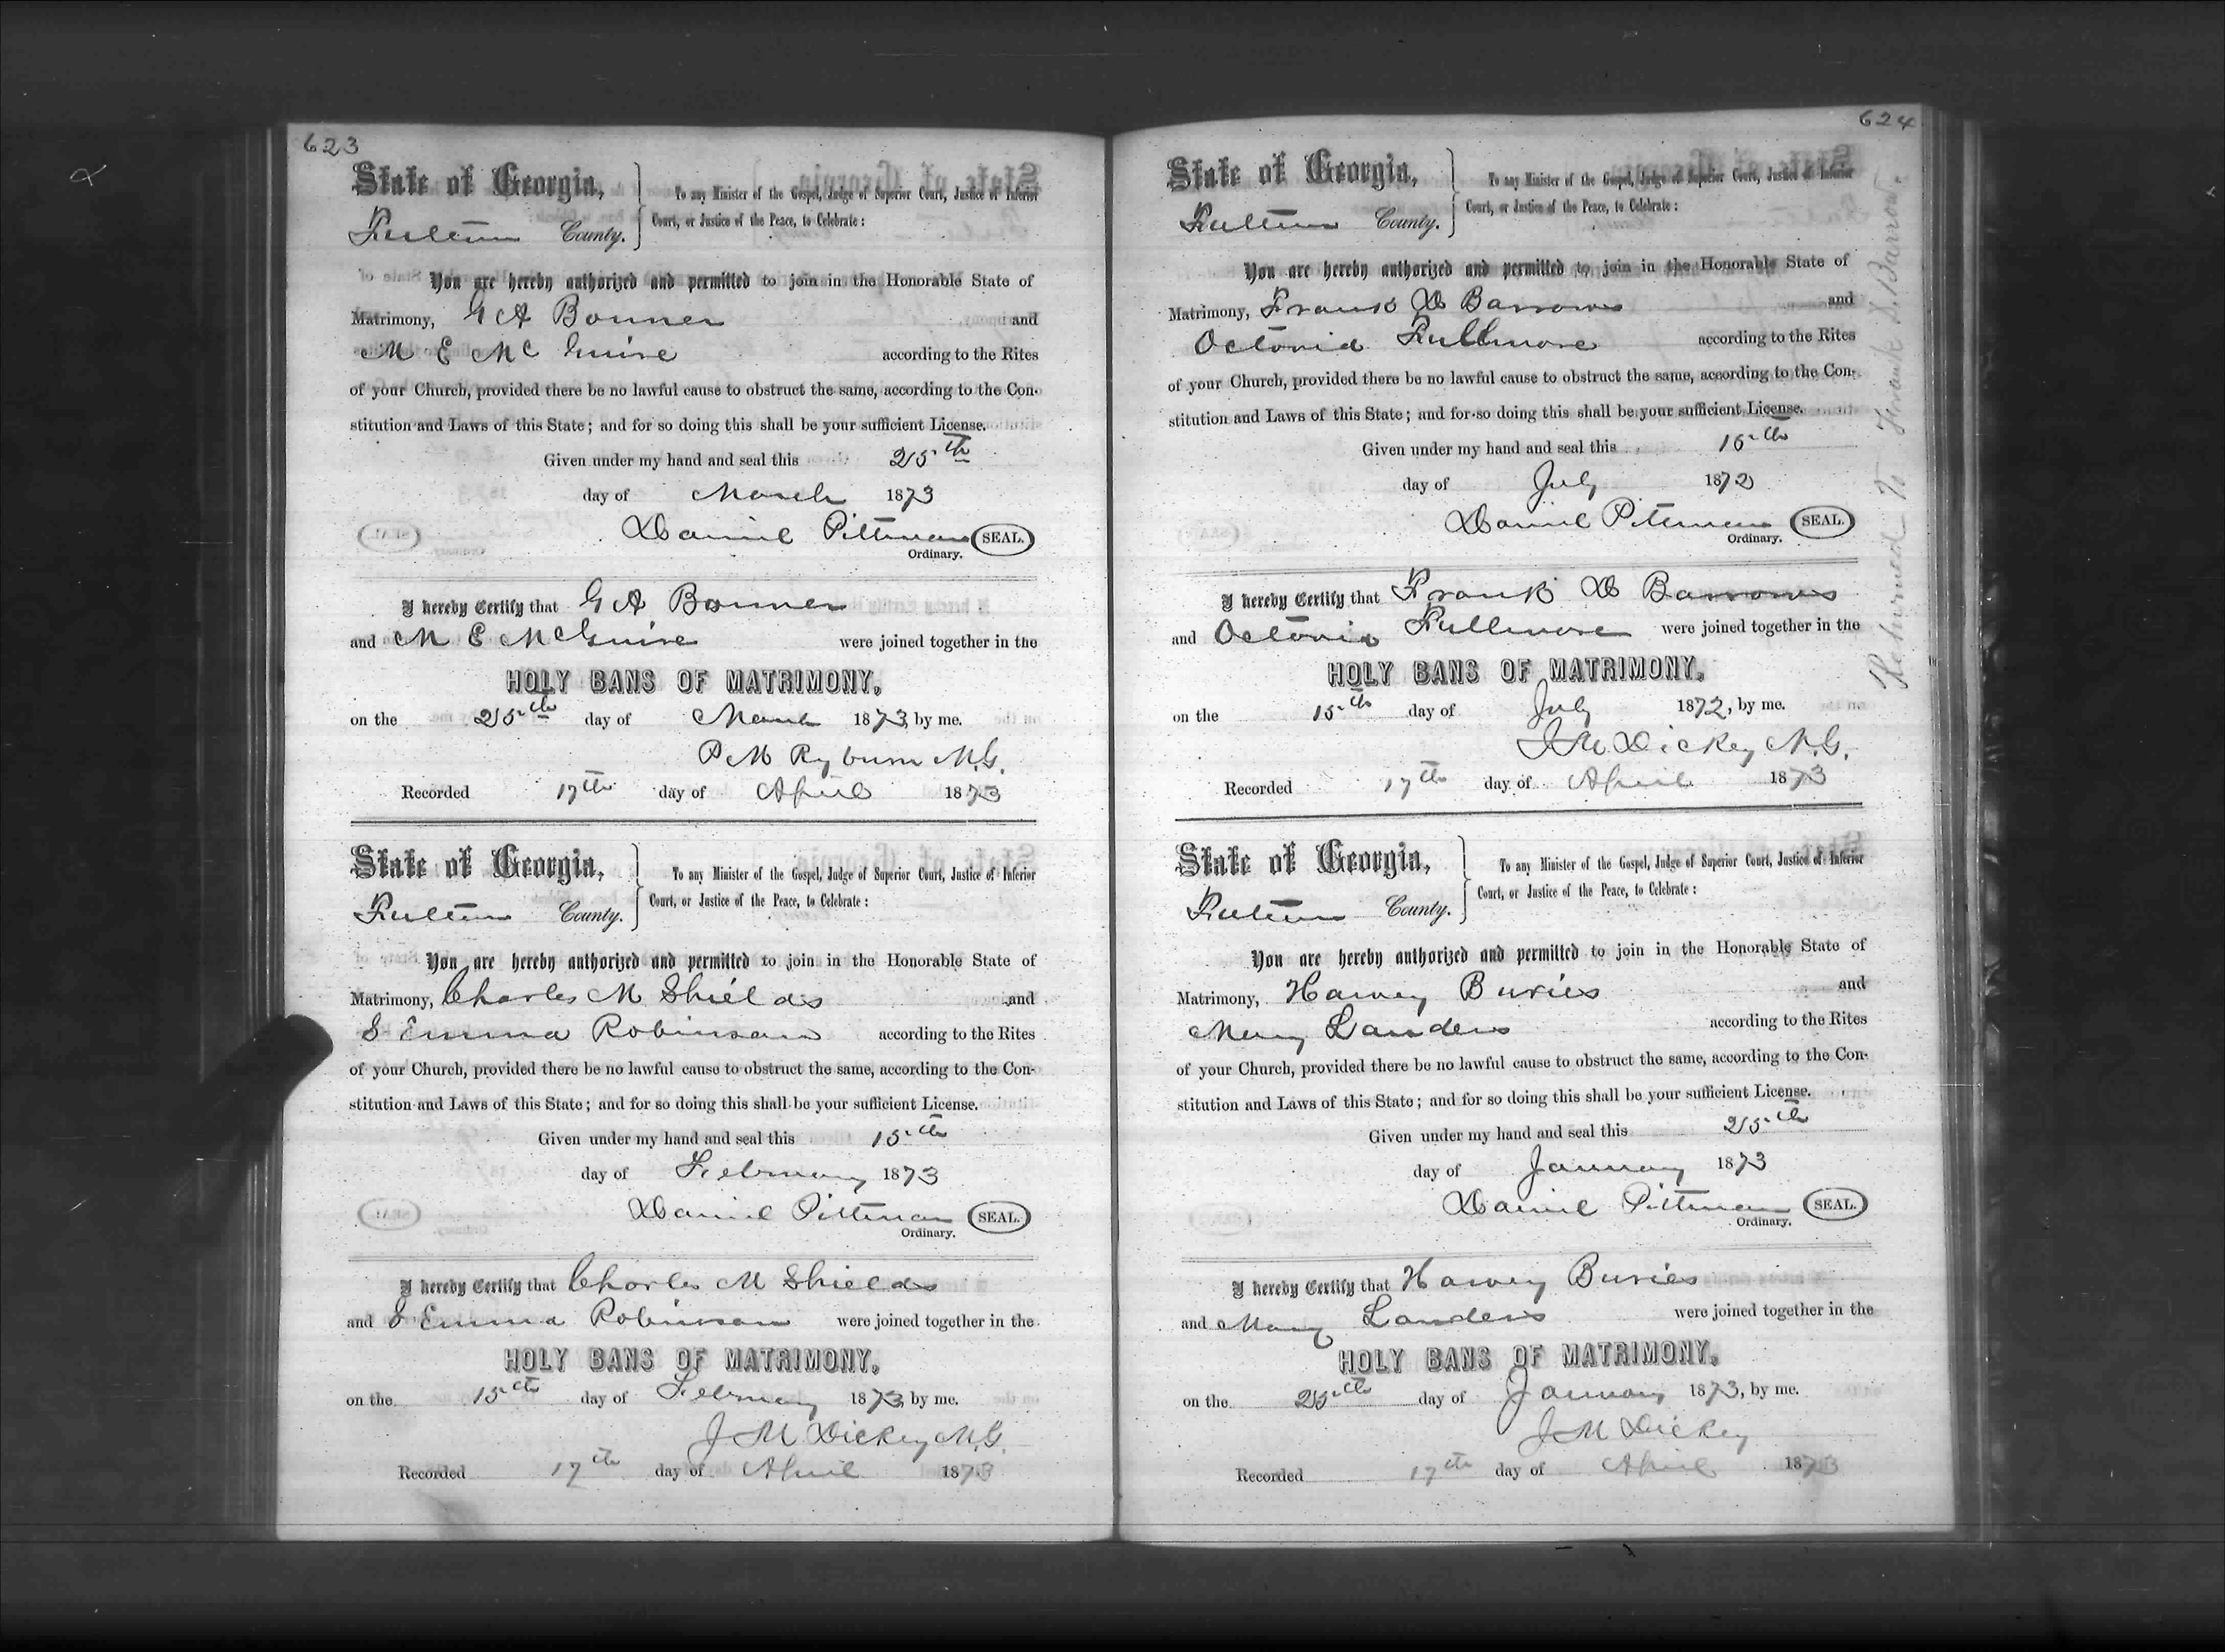 623
State of Georgia,
Fulton County.
To any Minister of the Gospel, Judge of Superior Court, Justice of Inferior
Court, or Justice of the Peace, to Celebrate:
You are hereby authorized and permitted to join in the Honorable State of
Matrimony, G A Bonner and
M E McGuire according to the Rites
of your Church, provided there be no lawful cause to obstruct the same, according to the Con-
stitution and Laws of this State; and for so doing this shall be your sufficient License.
Given under my hand and seal this 25th
day of March 1873
Daniel Pittman SEAL.
Ordinary.
I hereby Certify that G A Bonner
and M E McGuire were joined together in the
HOLY BANS OF MATRIMONY,
on the 25th day of March 1873, by me.
P M Ryburn M.G.
Recorded 17th day of April 1873
State of Georgia,
Fulton County.
To any Minister of the Gospel, Judge of Superior Court, Justice of Inferior
Court, or Justice of the Peace, to Celebrate:
You are hereby authorized and permitted to join in the Honorable State of
Matrimony, Charles M Shields and
S Emma Robinson according to the Rites
of your Church, provided there be no lawful cause to obstruct the same, according to the Con-
stitution and Laws of this State; and for so doing this shall be your sufficient License.
Given under my hand and seal this 15th
day of February 1873
Daniel Pittman SEAL.
Ordinary.
I hereby Certify that Charles M Shields
and S Emma Robinson were joined together in the
HOLY BANS OF MATRIMONY,
on the 15th day of February 1873, by me.
J M Dickey M.G.
Recorded 17th day of April 1873
624
State of Georgia,
Fulton County.
To any Minister of the Gospel, Judge of Superior Court, Justice of Inferior
Court, or Justice of the Peace, to Celebrate:
You are hereby authorized and permitted to join in the Honorable State of
Matrimony, Frank D Barrows and
Octavia Fullmore according to the Rites
of your Church, provided there be no lawful cause to obstruct the same, according to the Con-
stitution and Laws of this State; and for so doing this shall be your sufficient License.
Given under my hand and seal this 15th
day of July 1872
Daniel Pittman SEAL.
Ordinary.
I hereby Certify that Frank D Barrows
and Octavia Fullmore were joined together in the
HOLY BANS OF MATRIMONY,
on the 15th day of July 1872, by me.
J M Dickey M.G.
Recorded 17th day of April 1873
Returned to Frank D. Barrow.
State of Georgia,
Fulton County.
To any Minister of the Gospel, Judge of Superior Court, Justice of Inferior
Court, or Justice of the Peace, to Celebrate:
You are hereby authorized and permitted to join in the Honorable State of
Matrimony, Harvey Buries and
Mary Landers according to the Rites
of your Church, provided there be no lawful cause to obstruct the same, according to the Con-
stitution and Laws of this State; and for so doing this shall be your sufficient License.
Given under my hand and seal this 25th
day of January 1873
Daniel Pittman SEAL.
Ordinary.
I hereby Certify that Harvey Buries
and Mary Landers were joined together in the
HOLY BANS OF MATRIMONY,
on the 25th day of January 1873, by me.
J M Dickey
Recorded 17th day of April 1873